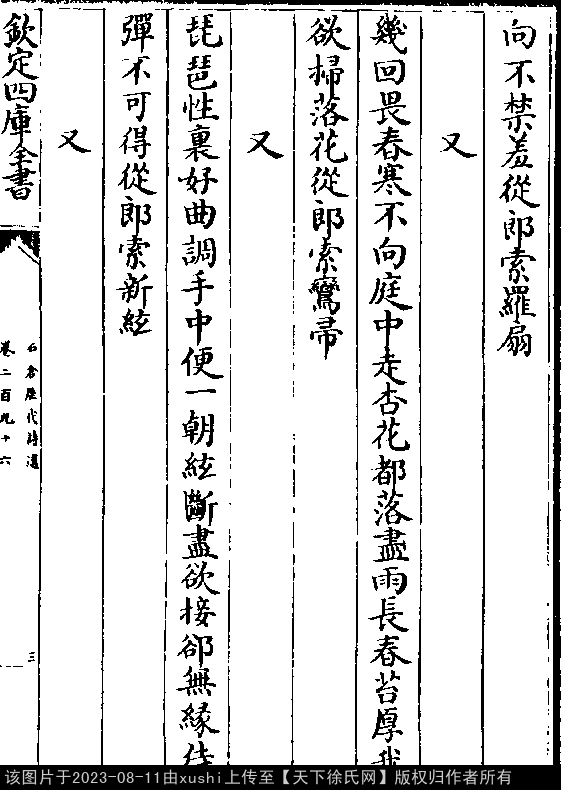 向不禁羞從郎索羅扇
又
幾回畏春寒不向庭中走杏花都落盡雨長春苔厚我
欲掃落花從郎索鸞帚
又
琵琶性裏好曲調手中便一朝絃斷盡欲接郤無緣待
彈不可得從郎索新絃
又
欽定四庫全書
石倉歷代詩選
卷二百九十六
三
该图片于2023-08-11由xushi上传至【天下徐氏网】版权归作者所有